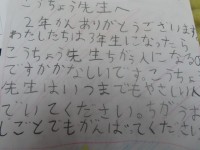 こうちょう先生へ
2年かんありがとうございます
わたしたちは3年生になったら
こうちょう先生ちがう人になるの
ですかかなしいです。こうちょ
う先生はいつまでもやさしい人
でいてください。ちがうは
しごとでもがんばってください